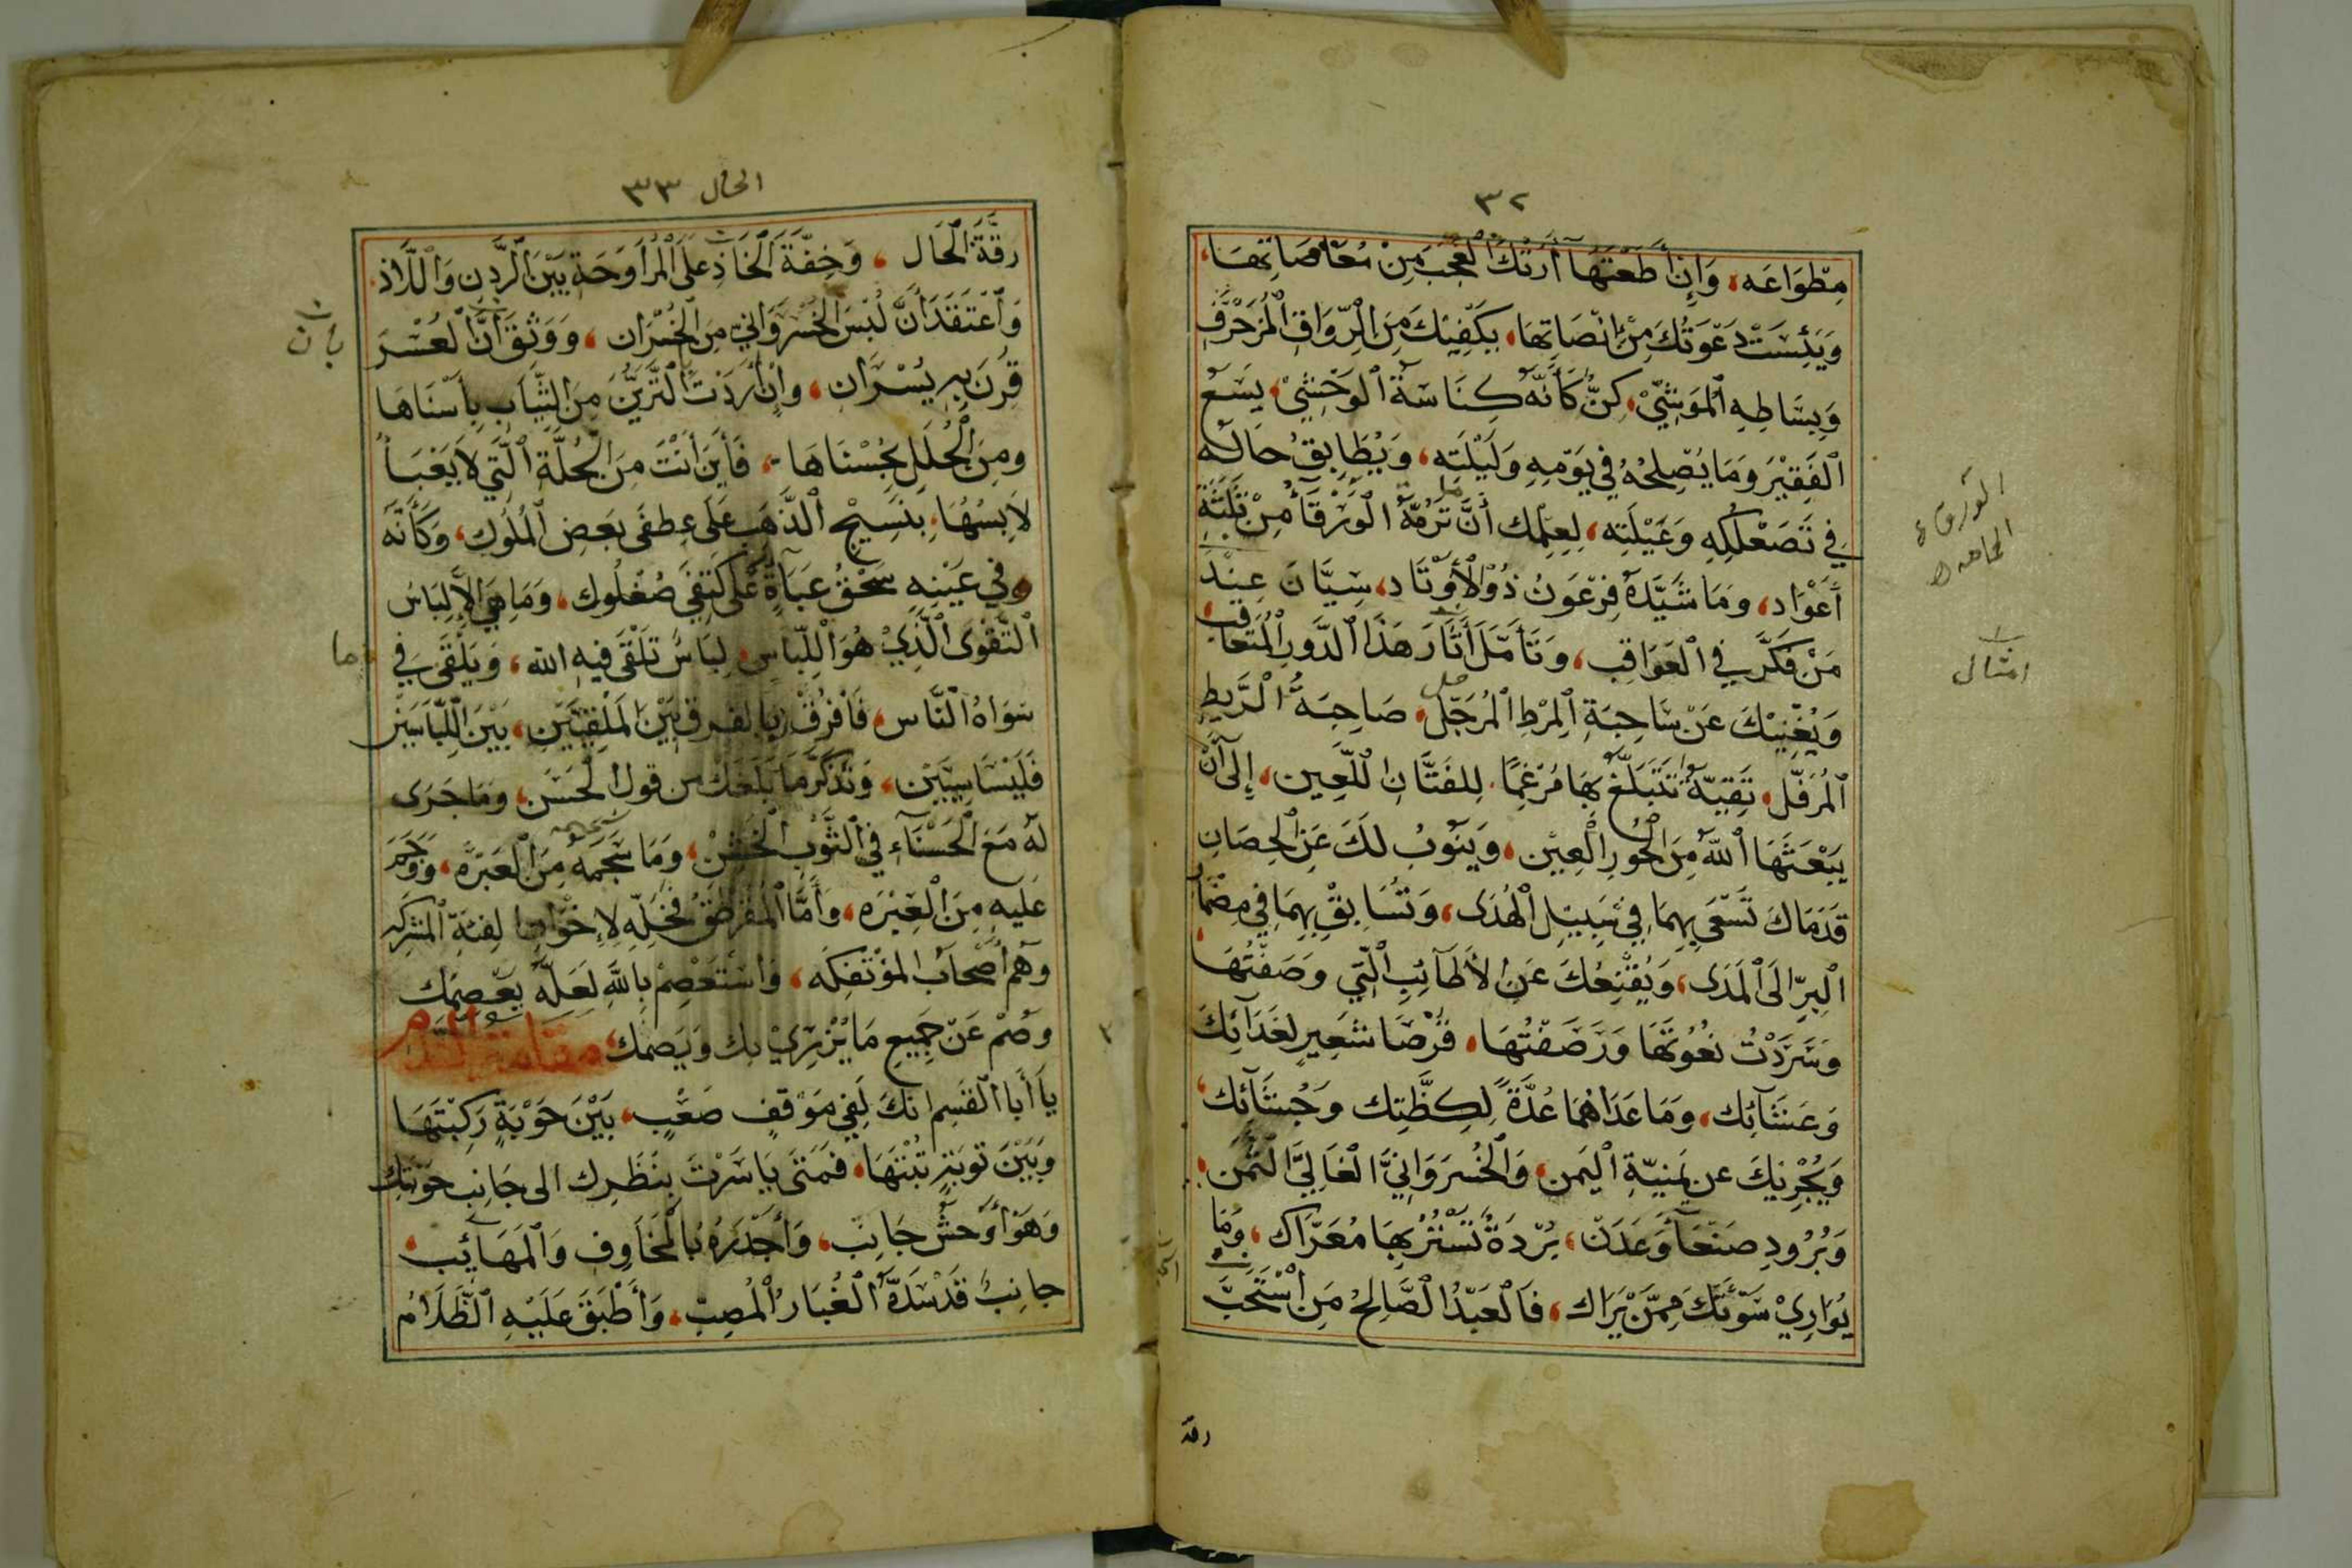 ٣٢
مِطْوَاعَه، وَإِنْ أَطَعْتَهَا أَرَتْكَ الْعَجَبَ مِنْ مُعَاصَاتِهَا،
وَيَئِسَتْ دَعْوَتُكَ مِنْ إِنْصَاتِهَا، يَكْفِيْكَ مِنَ الرِّوَاقِ الْمُزَخْرَفِ
وَبِسَاطِهِ الْمَوْشِيِّ، كِنٌّ كَأَنَّهُ كِنَاسَةُ الْوَحْشِيِّ، يَسَعُ
الْفَقِيْرَ وَمَا يُصْلِحُهُ فِي يَوْمِهِ وَلَيْلَتِه، وَيُطَابِقُ حَالَه
فِي تَصَعْلُكِهِ وَعَيْلَتِه، لِعِلْمِكَ أَنَّ مَا تَرُمُّهُ الْوَرْقَآءُ مِنْ ثَلَثَةِ
أَعْوَاد، وَمَا شَيَّدَهُ فِرْعَوْنُ ذُو الْأَوْتَاد، سِيَّانِ عِنْدَ
مَنْ فَكَّرَ فِي الْعَوَاقِب، وَتَأَمَّلَ آثَارَ هَذَا الدَّوْرِ الْمُتَعَاقِب
وَيُغْنِيْكَ عَنْ سَاحِبَةِ الْمِرْطِ الْمُرَجَّل، صَاحِبَةُ الرَّيْطِ
الْمُرَفَّل، تَقِيَّةٌ تَتَبَلَّغُ بِهَا مُرْغِمًا لِلْفَتَّانِ اللَّعِين، إِلَى أَنْ
يَبْعَثَهَا اللّٰهُ مِنَ الْحُورِ الْعِيْن، وَيَنُوبُ لَكَ عَنِ الْحِصَانِ
قَدَمَاكَ تَسْعَى بِهِمَا فِي سَبِيْلِ الْهُدَى، وَتُسَابِقُ بِهِمَا فِي مِضْمَارِ
الْبِرِّ الَى الْمَدَى، وَيُقْنِعُكَ عَنِ الْأَطَآئِبِ الَّتِي وَصَفْتُهَا
وَسَرَدْتُ نُعُوْتَهَا وَرَصَفْتُهَا، قُرْصَا شَعِيْرٍ لِغَدَآئِكَ
وَعَشَآئِك، وَمَا عَدَاهُمَا عُدَّةٌ لِكِظَّتِك وَجُشَآئِك،
وَيُجْزِيْكَ عن يَمْنِيَّةِ الْيَمَن، وَالْخُسْرَوَانِيِّ الْغَالِيِّ الثَّمَن
وَبُرُودِ صَنْعَآءَ وَعَدَن، بُرْدَةٌ تَسْتُرُ بِهَا مُعَرَّاك، وَمَا
يُوَارِيْ سَوْءَتَكَ مِمَّنْ يَرَاك، فَالْعَبْدُ الصَّالِحُ مَنِ اسْتَحَبَّ
رقة
الورقاء
الحمامه
امثال
الحال ٣٣
رِقَّةَ الْحَال، وَخِفَّةَ الْحَاذِ عَلَى الْمُرَاوَحَةِ بَيْنَ الرَّدَنِ وَاللَّاذ
وَاعْتَقَدَ أَنَّ لُبْسَ الْخُسْرَوَانِيِّ مِنَ الْخُسْرَان، وَوَثِقَ أَنَّ الْعُسْرَ
قُرِنَ بِهِ يُسْرَان، وَإِنْ أَرَدْتَ التَّزَيُّنَ مِنَ الثِّيَابِ بِأَسْنَاهَا
وَمِنَ الْحُلَلِ بِحُسْنَاهَا، فَأَيْنَ أَنْتَ مِنَ الْحُلَّةِ الَّتِي لَا يَعْبَأُ
لَابِسُهَا، بِنَسِيْجِ الذَّهَبِ عَلَى عِطْفَى بَعْضِ الْمُلُوك، وَكَأَنَّهُ
فِي عَيْنِهِ سَحْقُ عَبَآءَةٍ عَلَى كَتِفَيْ صُعْلُوك، وَمَا هِيَ إِلَّا لِبَاسُ
التَّقْوَى الَّذِيْ هُوَ اللِّبَاس، لِبَاسٌ تَلْقَى فِيهِ الله، وَيَلْقَى فِي
سِوَاهُ النَّاس، فَافْرُقْ بِالْفرق بَيْنَ الْمَلْقِيَّيْن، بَيْنَ اللِّبَاسَيْن
فَلَيْسَا سِيَّيْن، وَتَذَكَّرْ مَا بَلَغَكَ من قول الْحَسَن، وَمَا جَرَى
لَهُ مَعَ الْحَسْنَآءِ فِي الثَّوْبِ الْخَشِن، وَمَا سَجَمَهُ مِنَ الْعَبْرَه، وَوَجَمَ
عَلَيْهِ مِنَ الْغِيْرَه، وَأَمَّا الْمُقَرْطَقُ فَخَلِّهِ لِإِخْوَانِهَا لِفِئَةِ الْمُشْرِكَه
وَهُمْ أَصْحَابُ الْمُؤْتَفِكَه، وَاسْتَعْصِمْ بِاللّٰهِ لَعَلَّهُ يَعْصِمُك
وَصُمْ عَنْ جَمِيعِ مَا يُزْرِيْ بِكَ وَيَصِمُك، مقامة الندم
يَا أَبَا الْقَسِمِ انَّكَ لَفِي مَوْقِفٍ صَعْب، بَيْنَ حَوْبَةٍ رَكِبْتَهَا
وَبَيْنَ تَوْبَةٍ تُبْتَهَا، فَمَتَى يَاسَرْتَ بِنَظَرِك الى جَانِبِ حَوْبَتِكَ
وَهُوَ أَوْحَشُ جَانِب، وَأَجْدَرُهُ بِالْمَخَاوِفِ وَالْمَهَآئِب،
جَانِبٌ قَدْ سَدَّهُ الْغُبَارُ الْمُصِبّ، وَأَطْبَقَ عَلَيْهِ الظَّلَامُ
بان